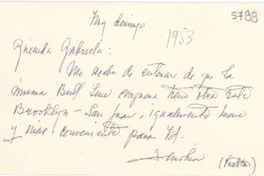 Hoy domingo
1953
5788
Querida Gabriela:
Me acabo de enterar de que la
misma Bull Line Company tiene otra
Brooklyn - San Juan, igualmente buena
y más conveniente para Ud.
(Kuster)